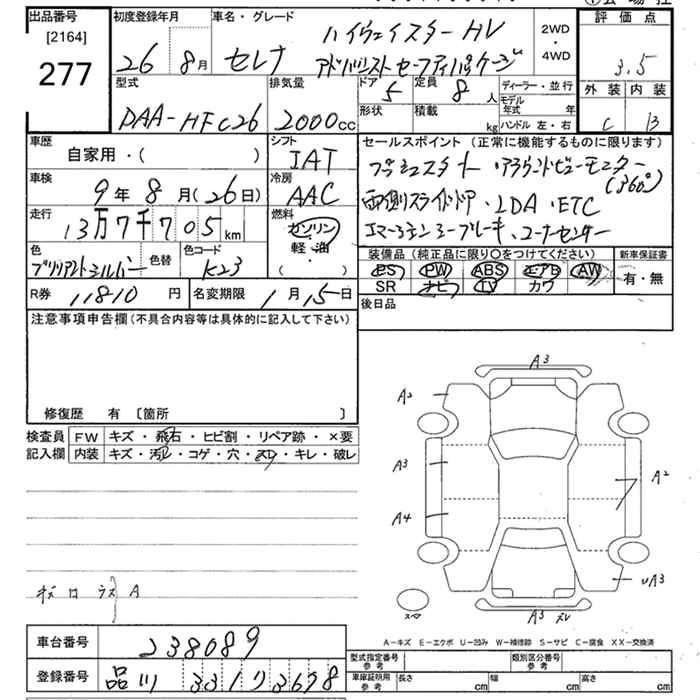 出品番号
[2164]
277
初度登録年月
26 8月
車名・グレード
セレナ
ハイウェイスターHV
アドバンストセーフティパッケージ
2WD
・
4WD
評価点
3.5
外装 内装
C B
型式
DAA-HFC26
排気量
2000cc
ドア
5
定員
8 人
形状
積載
kg
ディーラー・並行
モデル年式 年
ハンドル 左・右
車歴
自家用・( )
車検
9年8月(26日)
走行
13万7千705km
色
ブリリアントシルバー
色替
色コード
K23
シフト
IAT
冷房
AAC
燃料
ガソリン
軽・油
( )
セールスポイント(正常に機能するものに限ります)
プッシュスタート・アラウンドビューモニター
(360°)
両側スライドドア・LDA・ETC
エマージェンシーブレーキ・コーナーセンサー
装備品(純正品に限り○をつけてください)
PS PW ABS エアB AW
SR ナビ TV カワ
新車保証書
有・無
R券 11810円
名変期限 1月15日
後日品
注意事項申告欄(不具合内容等は具体的に記入して下さい)
修復歴 有 〔箇所 〕
検査員
記入欄
FW キズ・飛石・ヒビ割・リペア跡・×要
内装 キズ・汚れ・コゲ・穴・スリ・キレ・破レ
A3
A2
A3
A2
A4
UA3
A3 ズレ
スペア
A-キズ E-エクボ U-凹み W-補修跡 S-サビ C-腐食 XX-交換済
車台番号
238089
登録番号
品川 331 ソ 3678
型式指定番号
参考
類別区分番号
参考
車庫証明用
参考
長さ cm
幅 cm
高さ cm